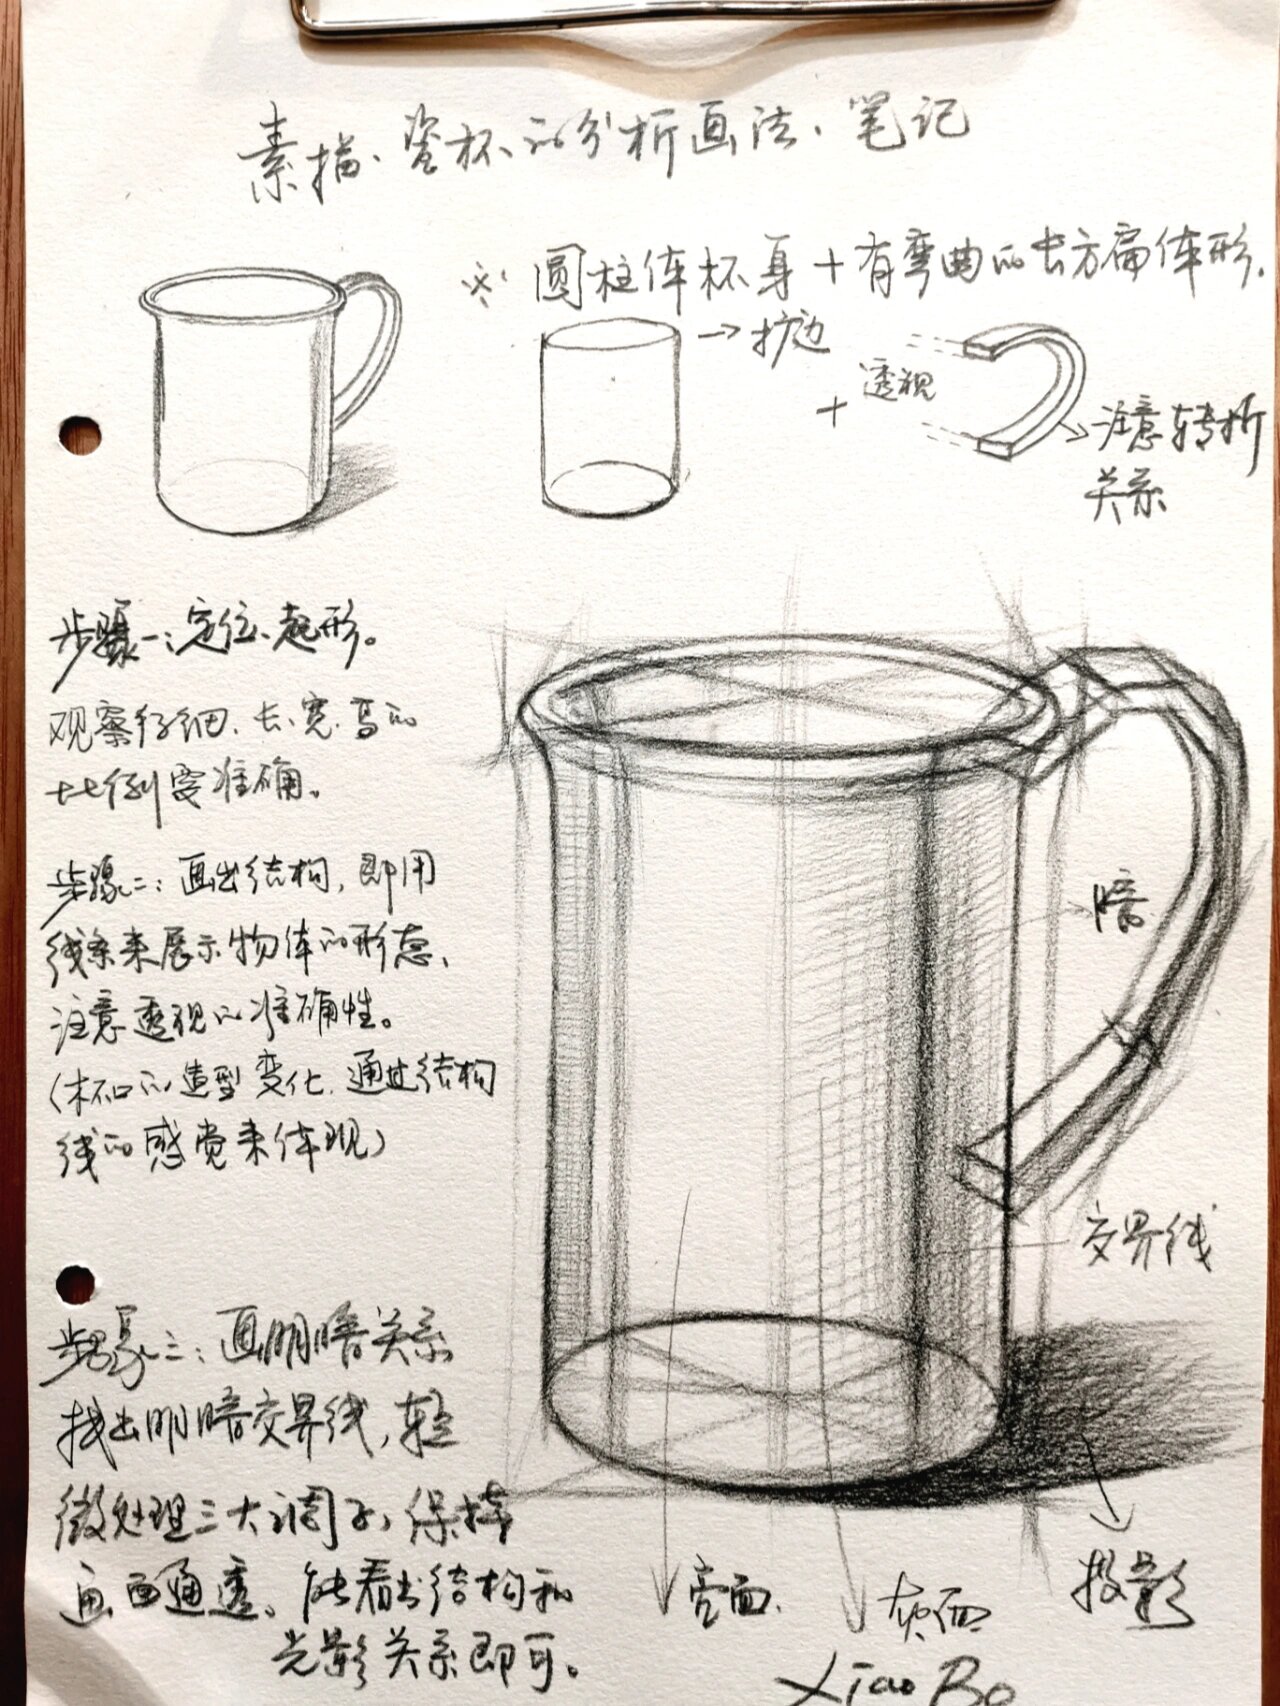 素描、瓷杯、的分析画法、笔记
※ 圆柱体杯身+有弯曲的长方扁体形.
→扩边
+ 透视
注意转折
关系
步骤一:定位、起形。
观察仔细、长、宽、高的
比例要准确。
步骤二:画出结构,即用
线条来展示物体的形态、
注意透视的准确性。
(杯口的造型变化、通过结构
线的感觉来体现)
暗
交界线
步骤三:画明暗关系
找出明暗交界线,轻
微处理三大调子,保持
画面通透。能看出结构和
光影关系即可。
亮面.
灰面
投影
XiaoBo